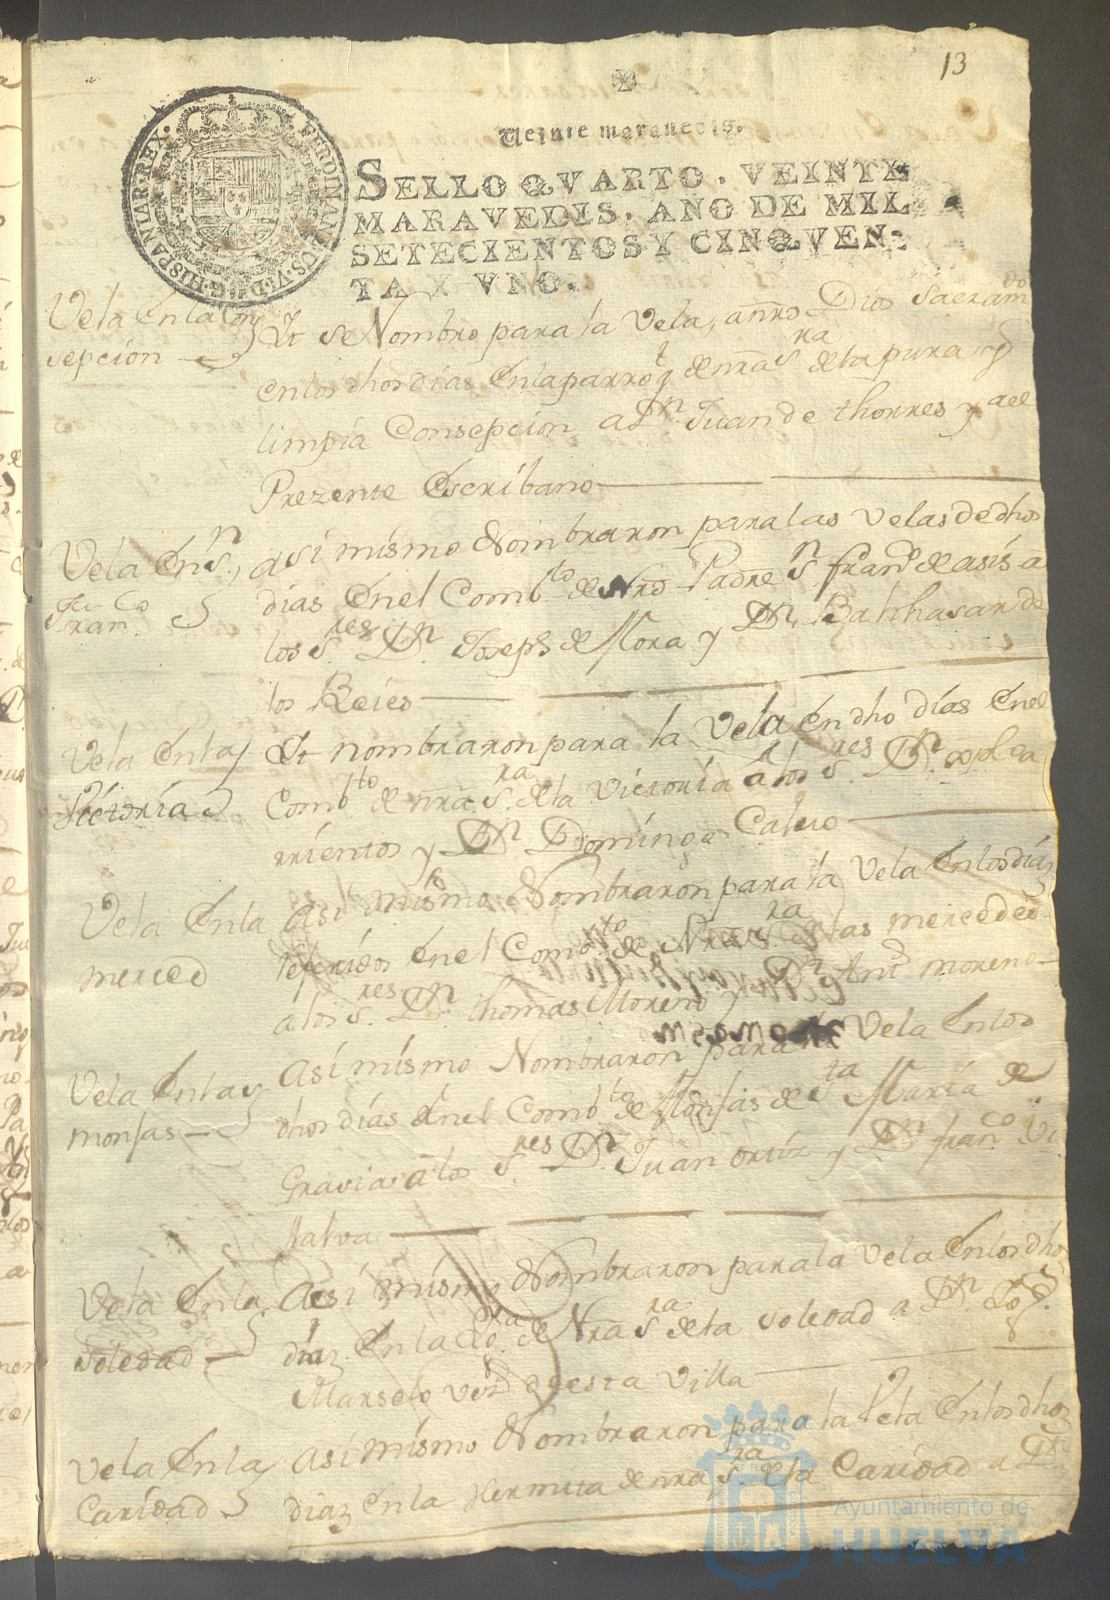 13
Veinte maravedis.
SELLO QVARTO, VEINTE
MARAVEDIS, AÑO DE MIL
SETECIENTOS Y CINQVEN-
TA Y VNO.
FERDINANDUS.VI.D.G.HISPANIAR.REX.
Vela En la Con
sepcion
Yt se Nombro para la Vela, a nro Dios Sacramdo
en los dhos dias En la parroq.t de nra S.ra de la pura y
limpia Consepcion a Dn. Juan de thorres y a el
Prezente Escribano
Vela En Sn.
Franco
asi mismo Nombraron para las Velas de dhos
dias En el Combto de Nro Padre Sn. franco de asis a
los S.res Dn. Joseph de Mora y Dn. Balthasar de
los Reies
Vela En la
Victoria
Yt nombraron para la Vela En dho dias En el
Combto de nra S.ra de la Victoria a los S.res Dn.
rrientos y Dn. Domingo Calvo
Vela En la
merced
Asi mismo Nombraron para la Vela En los dias
referidos En el Combto de Nra S.ra de las mercedes
a los S.res Dn. thomas Moreno y Dn. Anto moreno
Vela En las
monjas
Asi mismo Nombraron para la Vela En los
dhos dias En el Combto de Monjas de Sta Maria de
Gracia a los S.res Dn. Juan ortiz y Dn. franco Vi
llalva
Vela En la
soledad
Asi mismo Nombraron para la Vela En los dhos
diaz En la de Nra S.ra de la soledad a Dn.
Marselo vezo de esta Villa
Vela En la
Caridad
asi mismo Nombraron para la Vela En los dhos
diaz En la Hermita de nra S.ra de la Caridad a Dn.
Ayuntamiento de
HUELVA